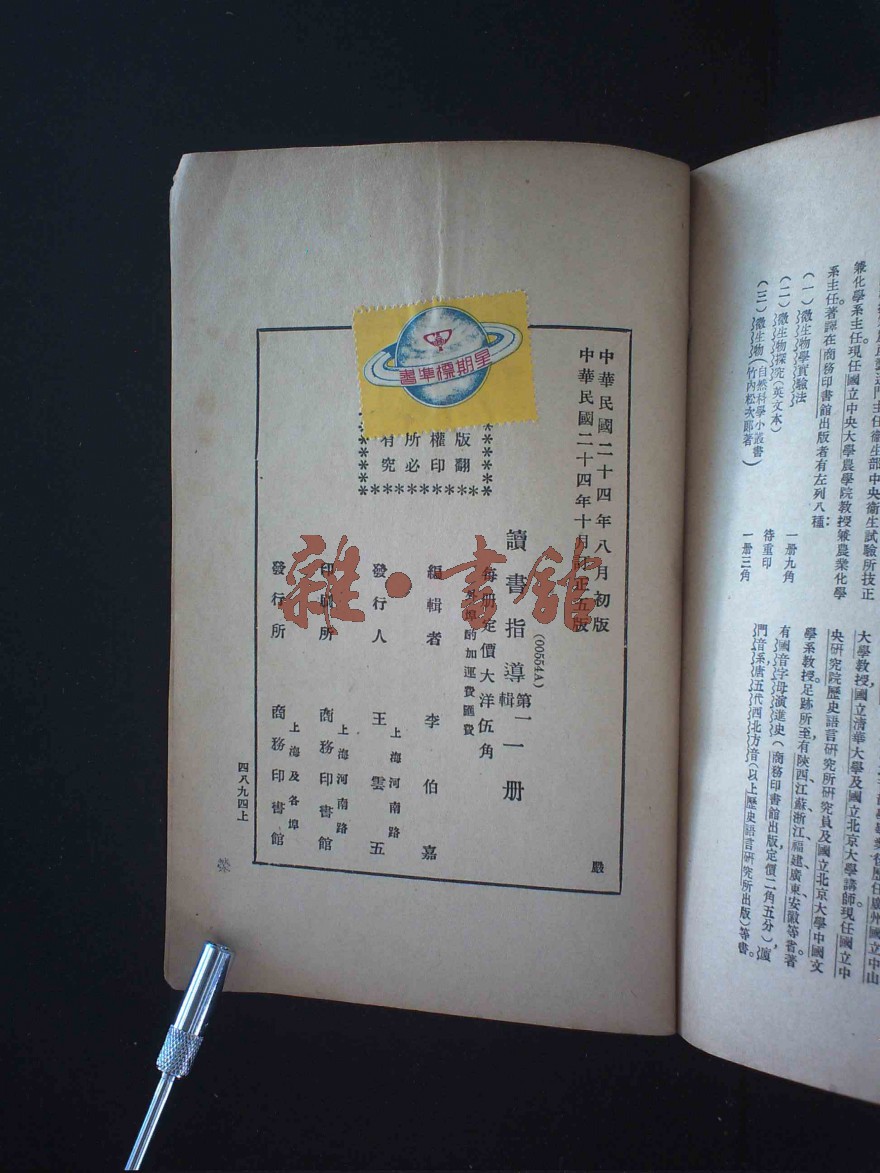 兼化學系主任。現任國立中央大學農學院教授兼農業化學
系主任。著譯在商務印書館出版者有左列八種：
（一）微生物學實驗法 一册九角
（二）微生物探究（英文本） 待重印
（三）微生物（自然科學小叢書）（竹內松次郎著） 一册三角
大學教授，國立清華大學及國立北京大學講師。現任國立中
央研究院歷史語言研究所研究員及國立北京大學中國文
學系教授。足跡所至有陝西、江蘇、浙江、福建、廣東、安徽等省。著
有國音字母演進史（商務印書館出版，定價二角五分），廈
門音系、唐五代西北方音（以上歷史語言研究所出版）等書。
中華民國二十四年八月初版
中華民國二十四年十月訂正五版
(00554A)
讀書指導第一輯一册
每册定價大洋伍角
外埠酌加運費匯費
編輯者 李伯嘉
發行人 王雲五
上海河南路
印刷所 商務印書館
上海河南路
發行所 商務印書館
上海及各埠
版權所有
翻印必究
星期標準書
四八九四上
嚴
雜·書館